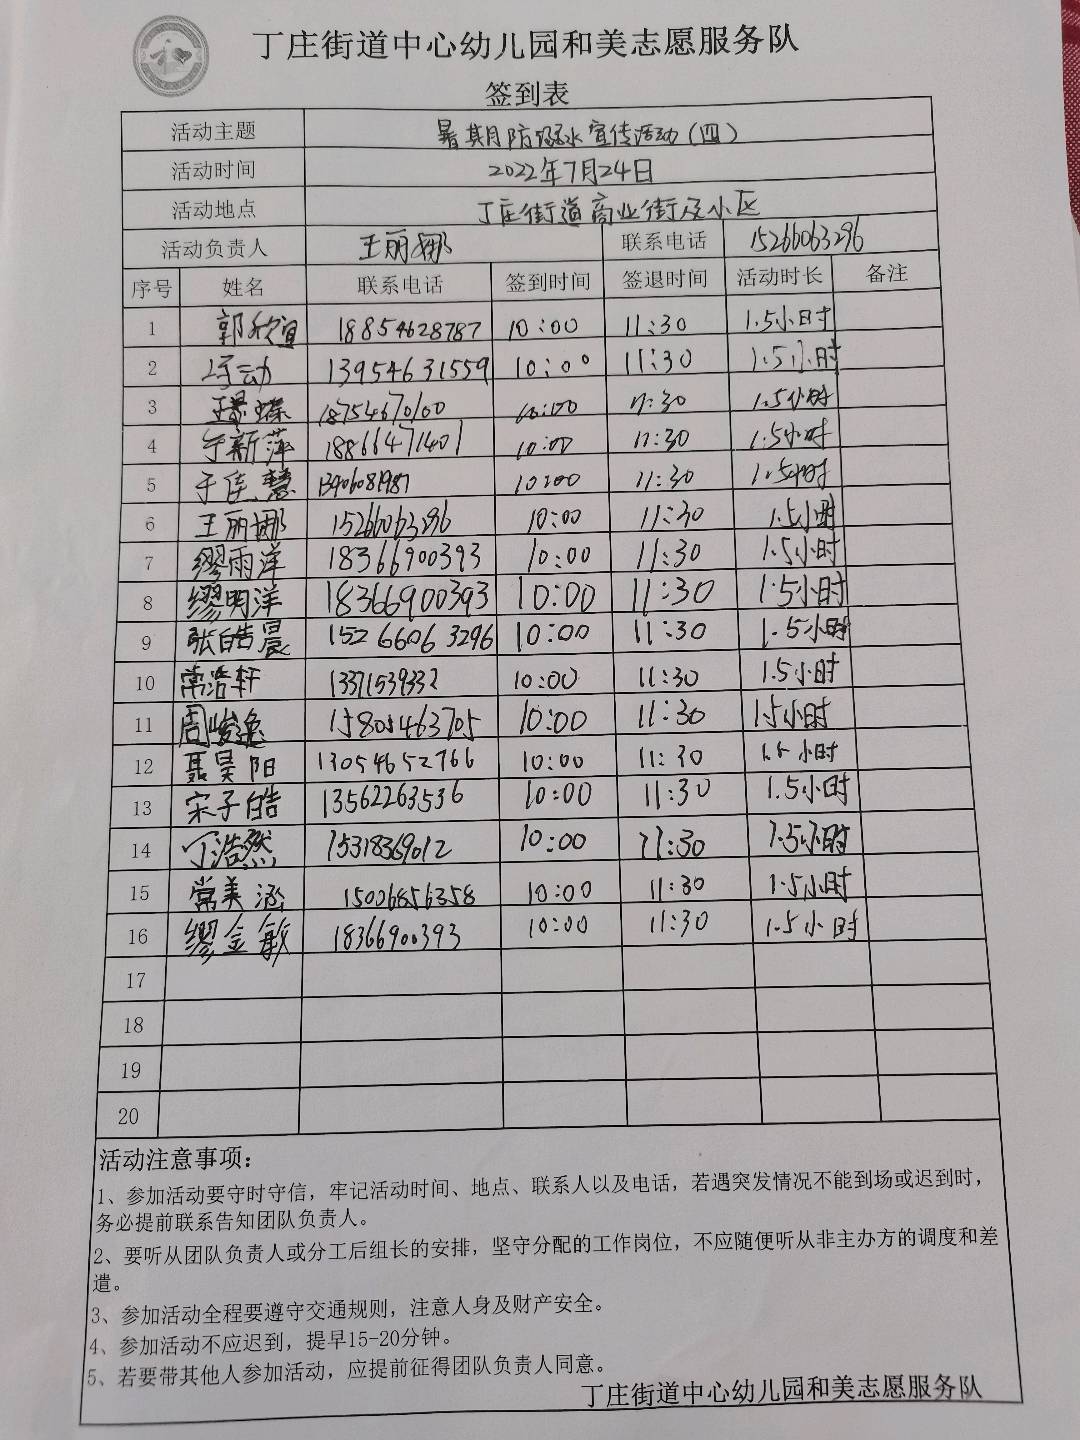 丁庄街道中心幼儿园和美志愿服务队
签到表
活动主题 暑期防溺水宣传活动(四)
活动时间 2022年7月24日
活动地点 丁庄街道商业街及小区
活动负责人 王丽娜 联系电话 15266063296
序号 姓名 联系电话 签到时间 签退时间 活动时长 备注
1 郭欣宜 18854628787 10:00 11:30 1.5小时
2 13954631559 10:00 11:30 1.5小时
3 18754670100 10:00 11:30 1.5小时
4 于新萍 18866471401 10:00 11:30 1.5小时
5 于佳慧 10:00 11:30 1.5小时
6 王丽娜 15266063296 10:00 11:30 1.5小时
7 缪雨洋 18366900393 10:00 11:30 1.5小时
8 缪明洋 18366900393 10:00 11:30 1.5小时
9 张皓晨 15266063296 10:00 11:30 1.5小时
10 常浩轩 13371539332 10:00 11:30 1.5小时
11 周峻逸 15805463705 10:00 11:30 1.5小时
12 聂昊阳 13054652766 10:00 11:30 1.5小时
13 宋子皓 13562263536 10:00 11:30 1.5小时
14 丁浩然 15318369012 10:00 11:30 1.5小时
15 常美涵 15006856358 10:00 11:30 1.5小时
16 缪金敏 18366900393 10:00 11:30 1.5小时
17
18
19
20
活动注意事项：
1、参加活动要守时守信，牢记活动时间、地点、联系人以及电话，若遇突发情况不能到场或迟到时，
务必提前联系告知团队负责人。
2、要听从团队负责人或分工后组长的安排，坚守分配的工作岗位，不应随便听从非主办方的调度和差
遣。
3、参加活动全程要遵守交通规则，注意人身及财产安全。
4、参加活动不应迟到，提早15-20分钟。
5、若要带其他人参加活动，应提前征得团队负责人同意。
丁庄街道中心幼儿园和美志愿服务队